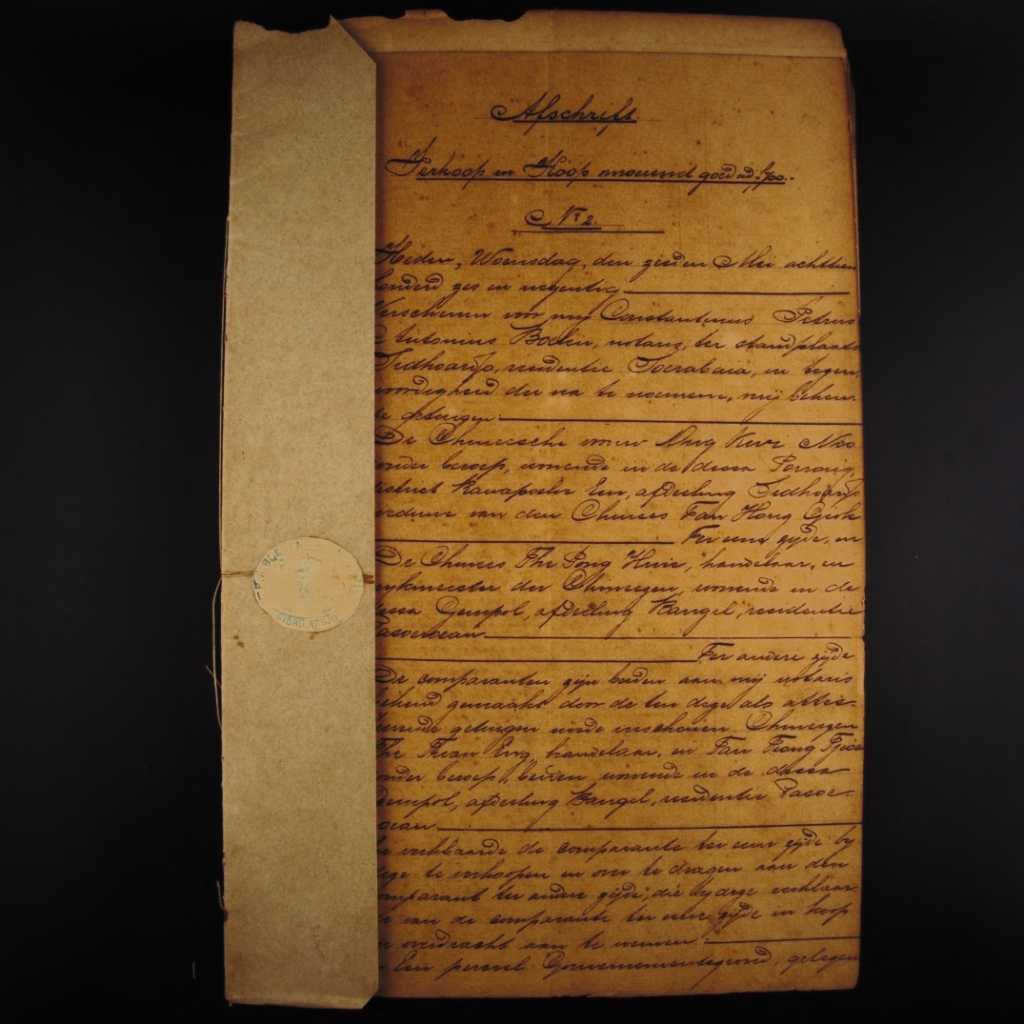 Afschrift
Verkoop en Koop onroerend goed ad
No 2.
Heden, Woensdag, den zesden Mei achttien
honderd zes en negentig
Verschenen voor mij Constantinus Petrus
Antonius notaris, ter standplaats
Sidhoardjo, residentie Soerabaia, in tegen
woordigheid der na te noemen, mij beken
de getuigen:
De Chineesche vrouw Nio
zonder beroep, wonende in de dessa Porrong,
district een, afdeeling Sidhoardjo
weduwe van den Chinees Tan Hong
Ter eene zijde, en
De Chinees The Pong Hwie, handelaar, en
wijkmeester der Chineezen, wonende in de
dessa Gempol, afdeeling Bangel, residentie
Pasoeroean
Ter andere zijde
De comparanten zijn beiden aan mij notaris
bekend gemaakt door de ten deze als attes-
teerende getuigen mede verschenen Chineezen
The Thean Eng, handelaar, en Tan Tiong
zonder beroep, beiden wonende in de dessa
Gempol, afdeeling Bangel, residentie Pasoe-
roean
verklaarde de comparante ter eene zijde by
deze te verkoopen en over te dragen aan den
comparant ter andere zijde, die by deze verklaar-
de van de comparante ter eene zijde in koop
en overdracht aan te nemen:
Een perceel Gouvernementsgrond, gelegen